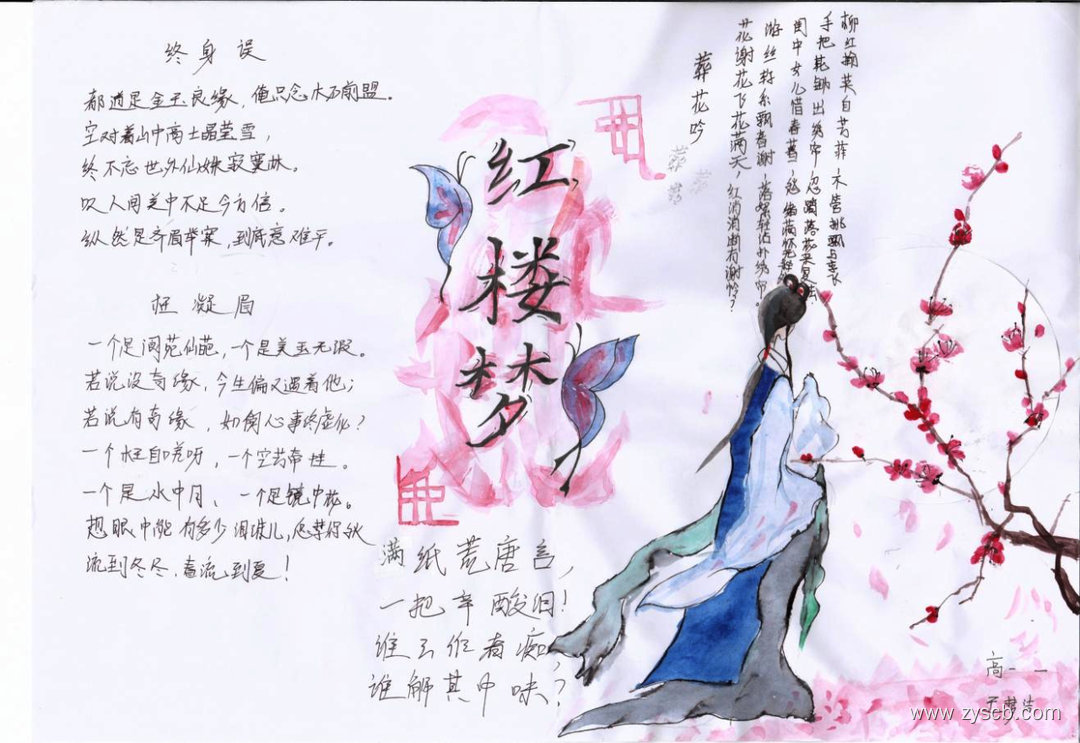 终身误
都道是金玉良缘，俺只念木石前盟。
空对着山中高士晶莹雪，
终不忘世外仙姝寂寞林。
叹人间美中不足今方信。
纵然是齐眉举案，到底意难平。
枉凝眉
一个是阆苑仙葩，一个是美玉无瑕。
若说没奇缘，今生偏又遇着他；
若说有奇缘，如何心事终虚化？
一个枉自嗟呀，一个空劳牵挂。
一个是水中月、一个是镜中花。
想眼中能有多少泪珠儿，怎禁得秋
流到冬冬，春流到夏！
红楼梦
满纸荒唐言，
一把辛酸泪！
谁云作者痴，
谁解其中味？
葬花吟
花谢花飞花满天，红消香断有谁怜？
游丝软系飘春榭，落絮轻沾扑绣帘。
闺中女儿惜春暮，愁绪满怀
手把花锄出绣帘，忍踏落花来复去
柳 自芳菲，不管桃飘与李
高一一
www.zyscb.com